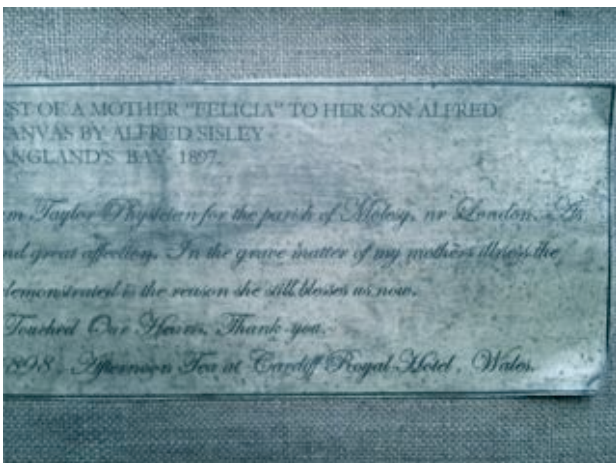 EST OF A MOTHER "FELICIA" TO HER SON ALFRED.
CANVAS BY ALFRED SISLEY
ANGLAND'S BAY 1897.
m Taylor Physicien for the parish of Molesy. nr London. As
nd great affection. In the grave matter of my mothers illness the
demonstrated is the reason she still blesses us now.
Touched Our Hearts. Thank-you.
1898. Afternoon Tea at Cardiff Royal Hotel, Wales.